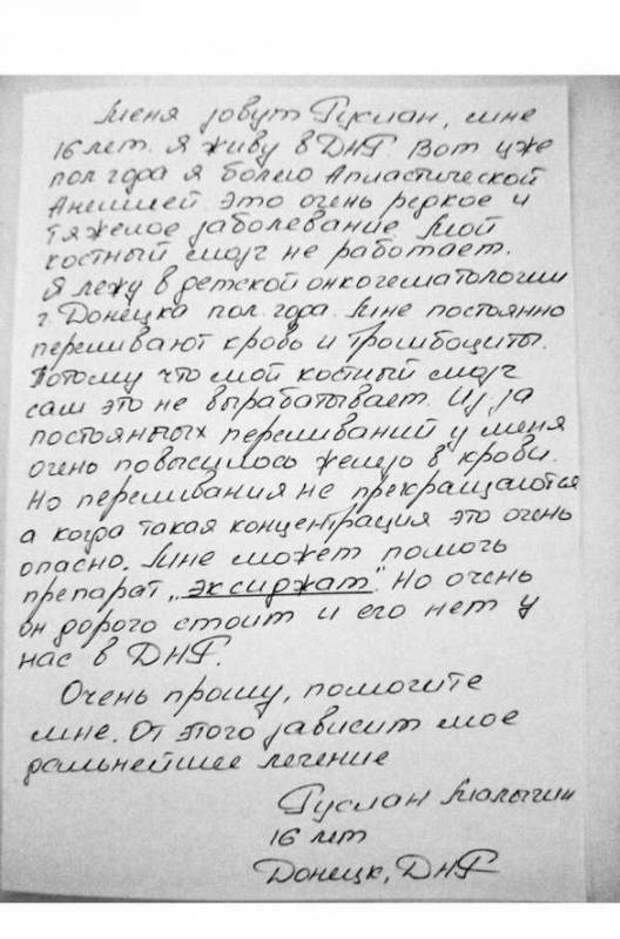 Меня зовут Руслан, мне
16 лет. Я живу в ДНР. Вот уже
пол года я болею Апластической
Анемией. Это очень редкое и
тяжелое заболевание. Мой
костный мозг не работает.
Я лежу в детской онкогематологии
г. Донецка пол года. Мне постоянно
переливают кровь и тромбоциты.
Потому что мой костный мозг
сам это не вырабатывает. Из за
постоянных переливаний у меня
очень повысилось железо в крови.
Но переливания не прекращаются
а когда такая концентрация это очень
опасно. Мне может помочь
препарат „эксиджат". Но очень
он дорого стоит и его нет у
нас в ДНР.
Очень прошу, помогите
мне. От этого зависит мое
дальнейшее лечение
Руслан Малыгин
16 лет
Донецк, ДНР